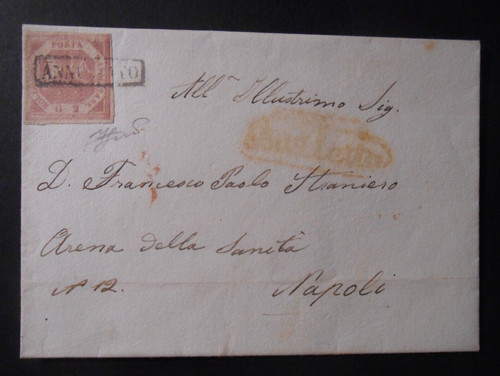 POSTA
ANNULLATO
G. 2
All.mo Illustrimo Sig.
D. Francesco Paolo Straniero
Arena della Sanità
N° 12.
Napoli